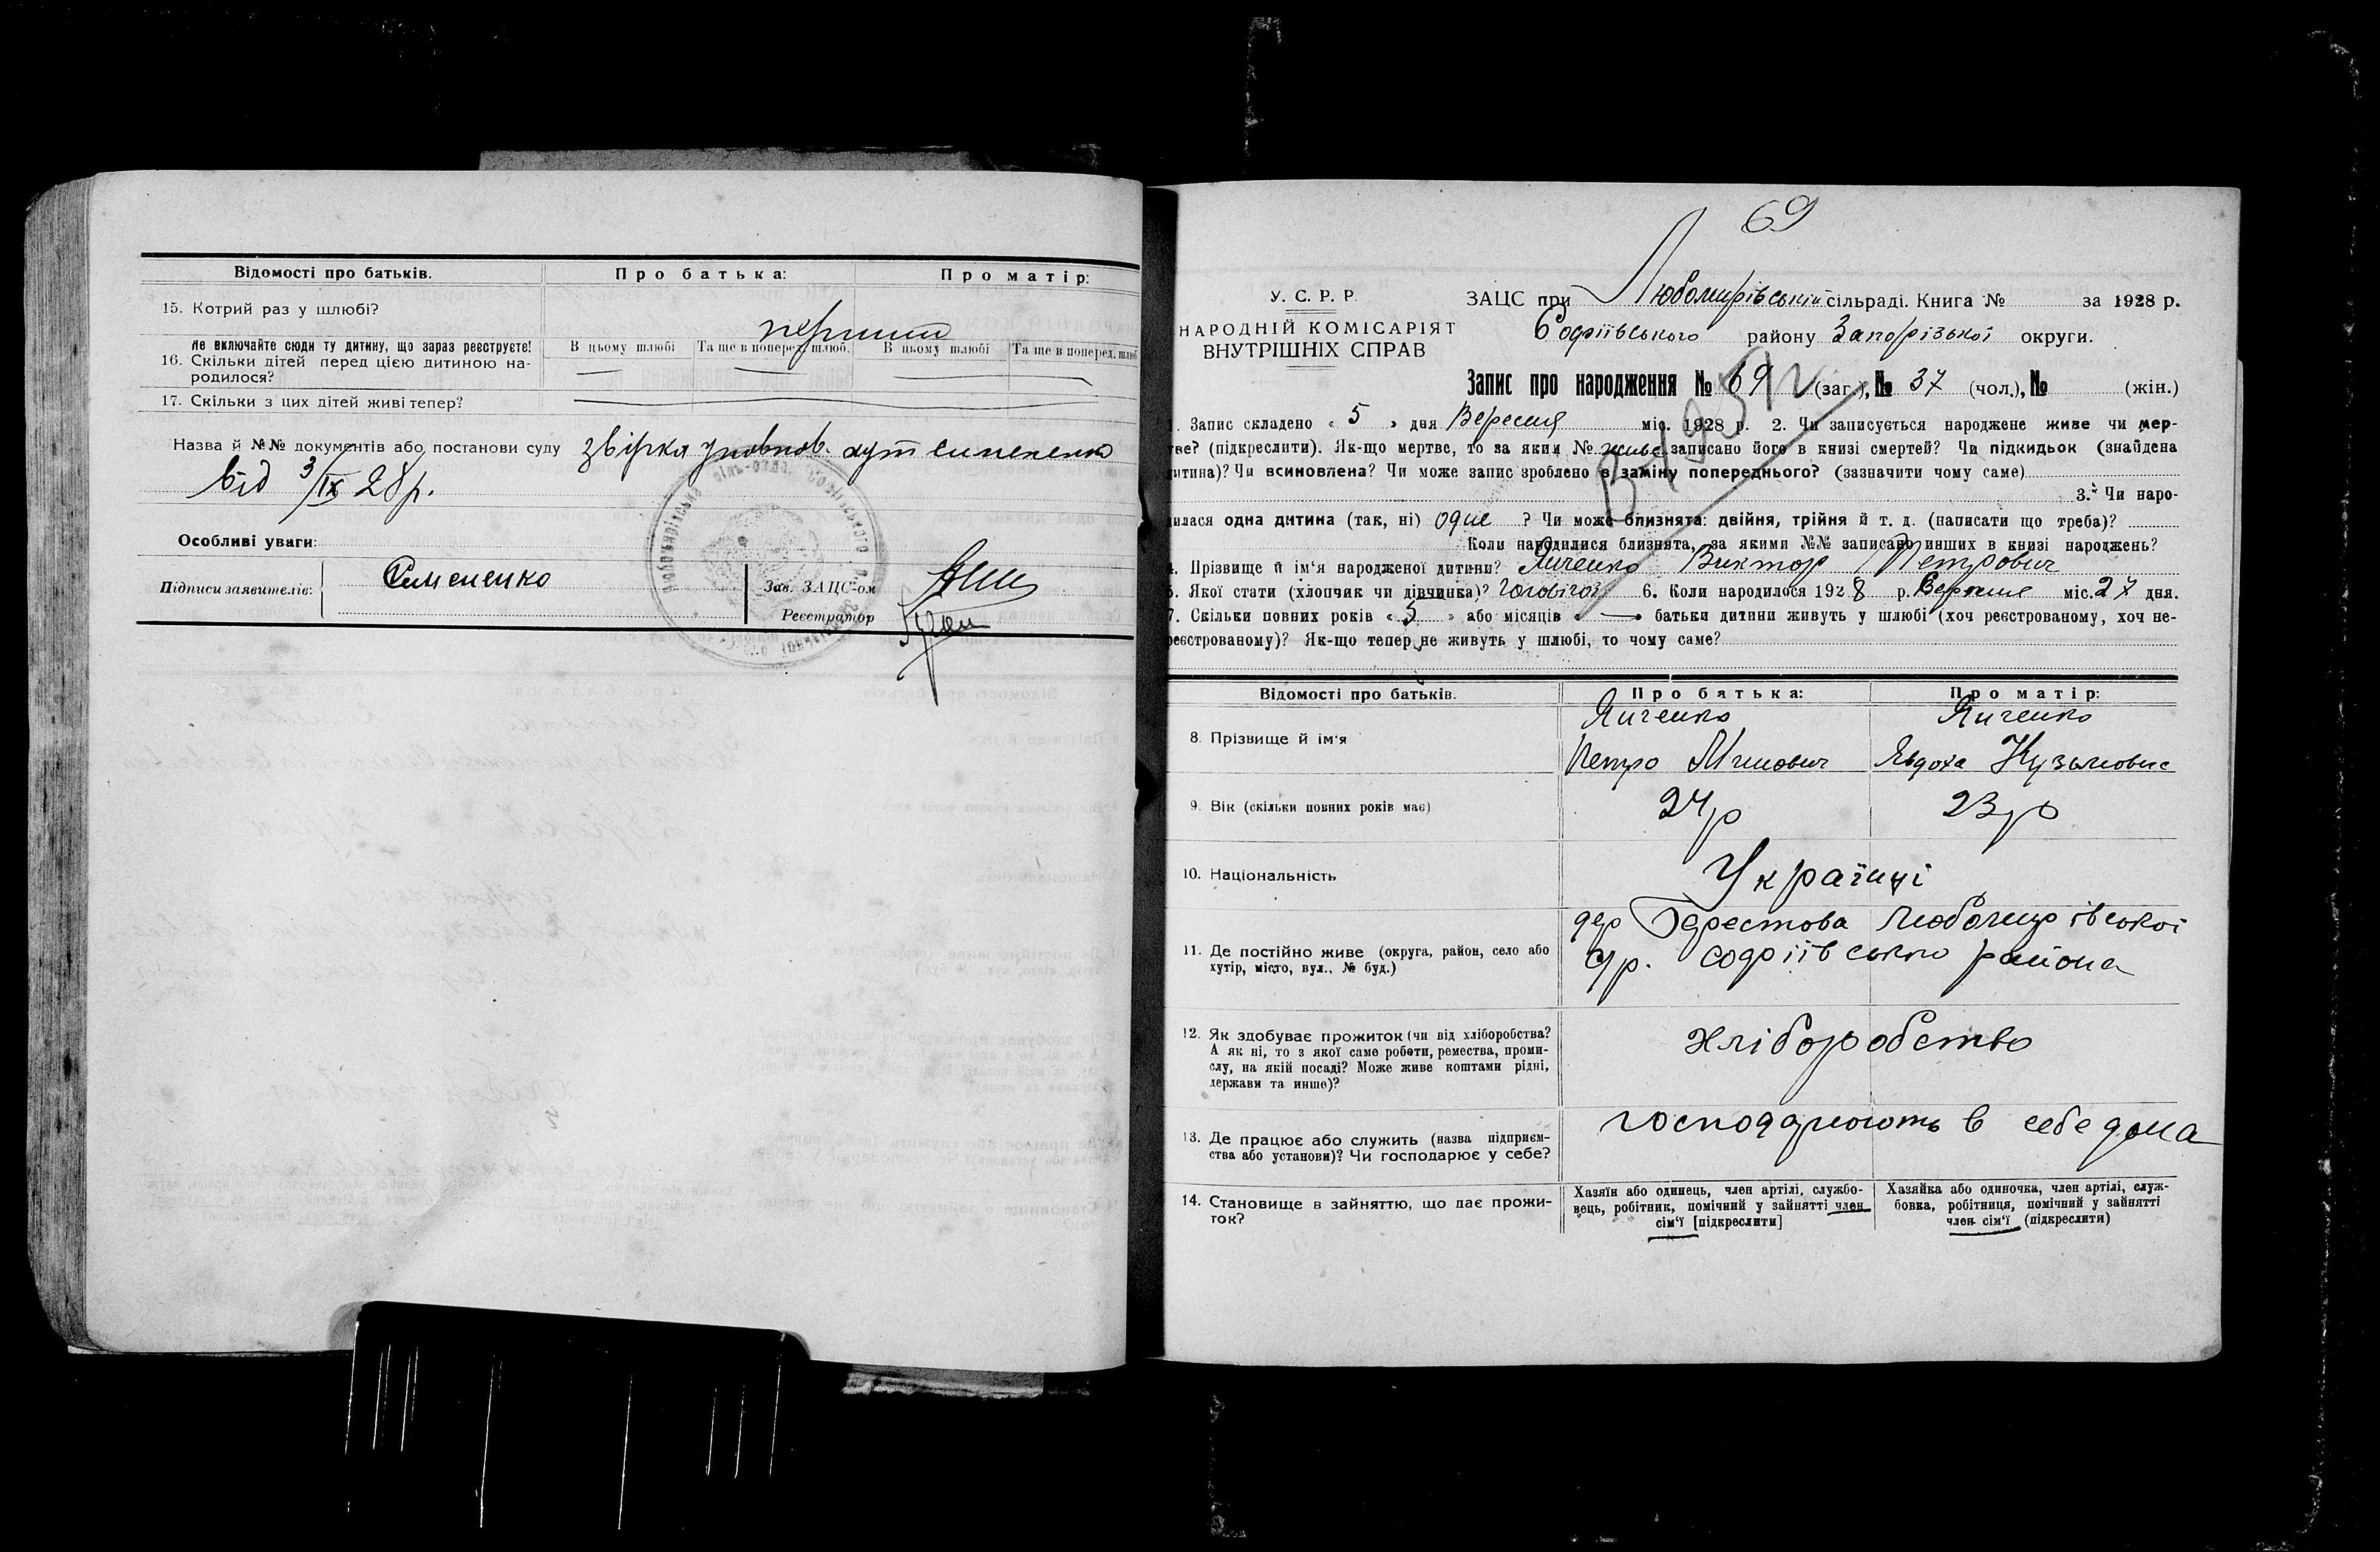 Відомості про батьків. Про батька: Про матір:
15. Котрий раз у шлюбі?
перший
Не включайте сюди ту дитину, що зараз реєструєте!
В цьому шлюбі Та ще в поперед. шлюб. В цьому шлюбі Та ще в поперед. шлюб.
16. Скільки дітей перед цією дитиною на-
родилося?
17. Скільки з цих дітей живі тепер?
Назва й №№ документів або постанови суду звірка уповнов. хут Симененко
від 3/IX 28 р.
Особливі уваги:
Підписи заявителів: Симененко
Зав. ЗАЦС-ом
Реєстратор
69
У. С. Р. Р.
НАРОДНІЙ КОМІСАРІЯТ
ВНУТРІШНІХ СПРАВ
ЗАЦС при Любомирівській сільраді. Книга № за 1928 р.
Софіївського району Запорізької округи.
Запис про народження № 69 (заг.), № 37 (чол.), № (жін.)
1. Запис складено « 5 » дня Вересня міс. 1928 р. 2. Чи записується народжене живе чи мер-
тве? (підкреслити). Як-що мертве, то за яким № живе записано його в книзі смертей? Чи підкидьок (знайдена
дитина)? Чи всиновлена? Чи може запис зроблено в заміну попереднього? (зазначити чому саме)
3. Чи наро-
дилася одна дитина (так, ні) одне ? Чи може близнята: двійня, трійня й т. д. (написати що треба)?
Коли народилися близнята, за якими №№ записано инших в книзі народжень?
4. Прізвище й ім'я народженої дитини? Яиченко Виктор Петрович
5. Якої стати (хлопчик чи дівчинка)? 6. Коли народилося 1928 р. Вересня міс. 27 дня.
7. Скільки повних років « 5 » або місяців « — » батьки дитини живуть у шлюбі (хоч реєстрованому, хоч не-
реєстрованому)? Як-що тепер не живуть у шлюбі, то чому саме?
Відомості про батьків. Про батька: Про матір:
Яиченко Яиченко
8. Прізвище й ім'я
Петро Явдоха Кузьмовна
9. Вік (скільки повних років має) 24 р 23 р
10. Національність Українці
11. Де постійно живе (округа, район, село або
хутір, місто, вул., № буд.)
дер Берестова Любомирівської
с/р. Софіївсько района
12. Як здобуває прожиток (чи від хліборобства?
А як ні, то з якої саме роботи, ремества, проми-
слу, на якій посаді? Може живе коштами рідні,
держави та инше)?
хліборобство
13. Де працює або служить (назва підприєм-
ства або установи)? Чи господарює у себе?
господарюють в себе дома
14. Становище в зайняттю, що дає прожи-
ток?
Хазяїн або одинець, член артілі, службо-
вець, робітник, помічний у зайнятті член
сім'ї [підкреслити]
Хазяйка або одиночка, член артілі, служ-
бовка, робітниця, помічний у зайнятті
член сім'ї (підкреслити)